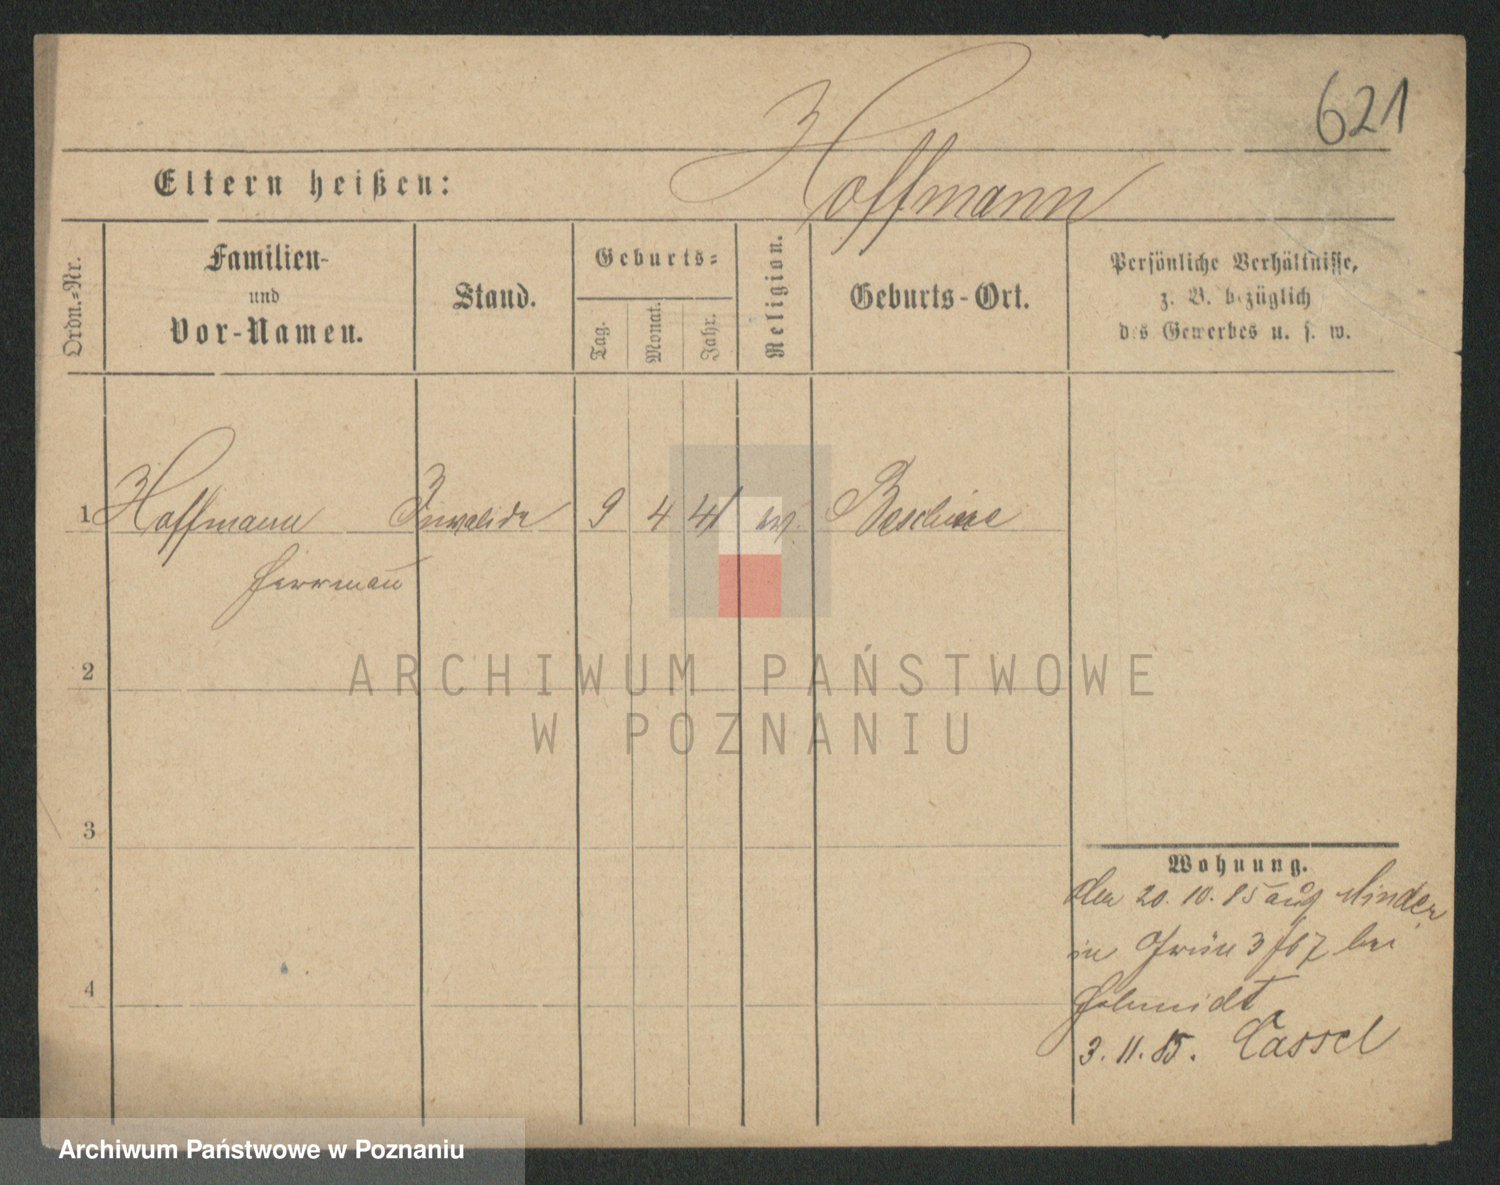 621
Hoffmann
Eltern heißen:
Ordn.-Nr.
Familien-
und
Vor-Namen.
Stand.
Geburts-
Tag.
Monat.
Jahr.
Religion.
Geburts-Ort.
Persönliche Verhältnisse,
z. B. bezüglich
des Gewerbes u. s. w.
1 Hoffmann Invalide 9 4 41 ev.
Herrmann
2
ARCHIWUM PAŃSTWOWE
W POZNANIU
3
4
Wohnung.
den 20. 10. 85 aus Minden
in Grün 3 bei
Schmidt
3. 11. 85. Cassel
Archiwum Państwowe w Poznaniu